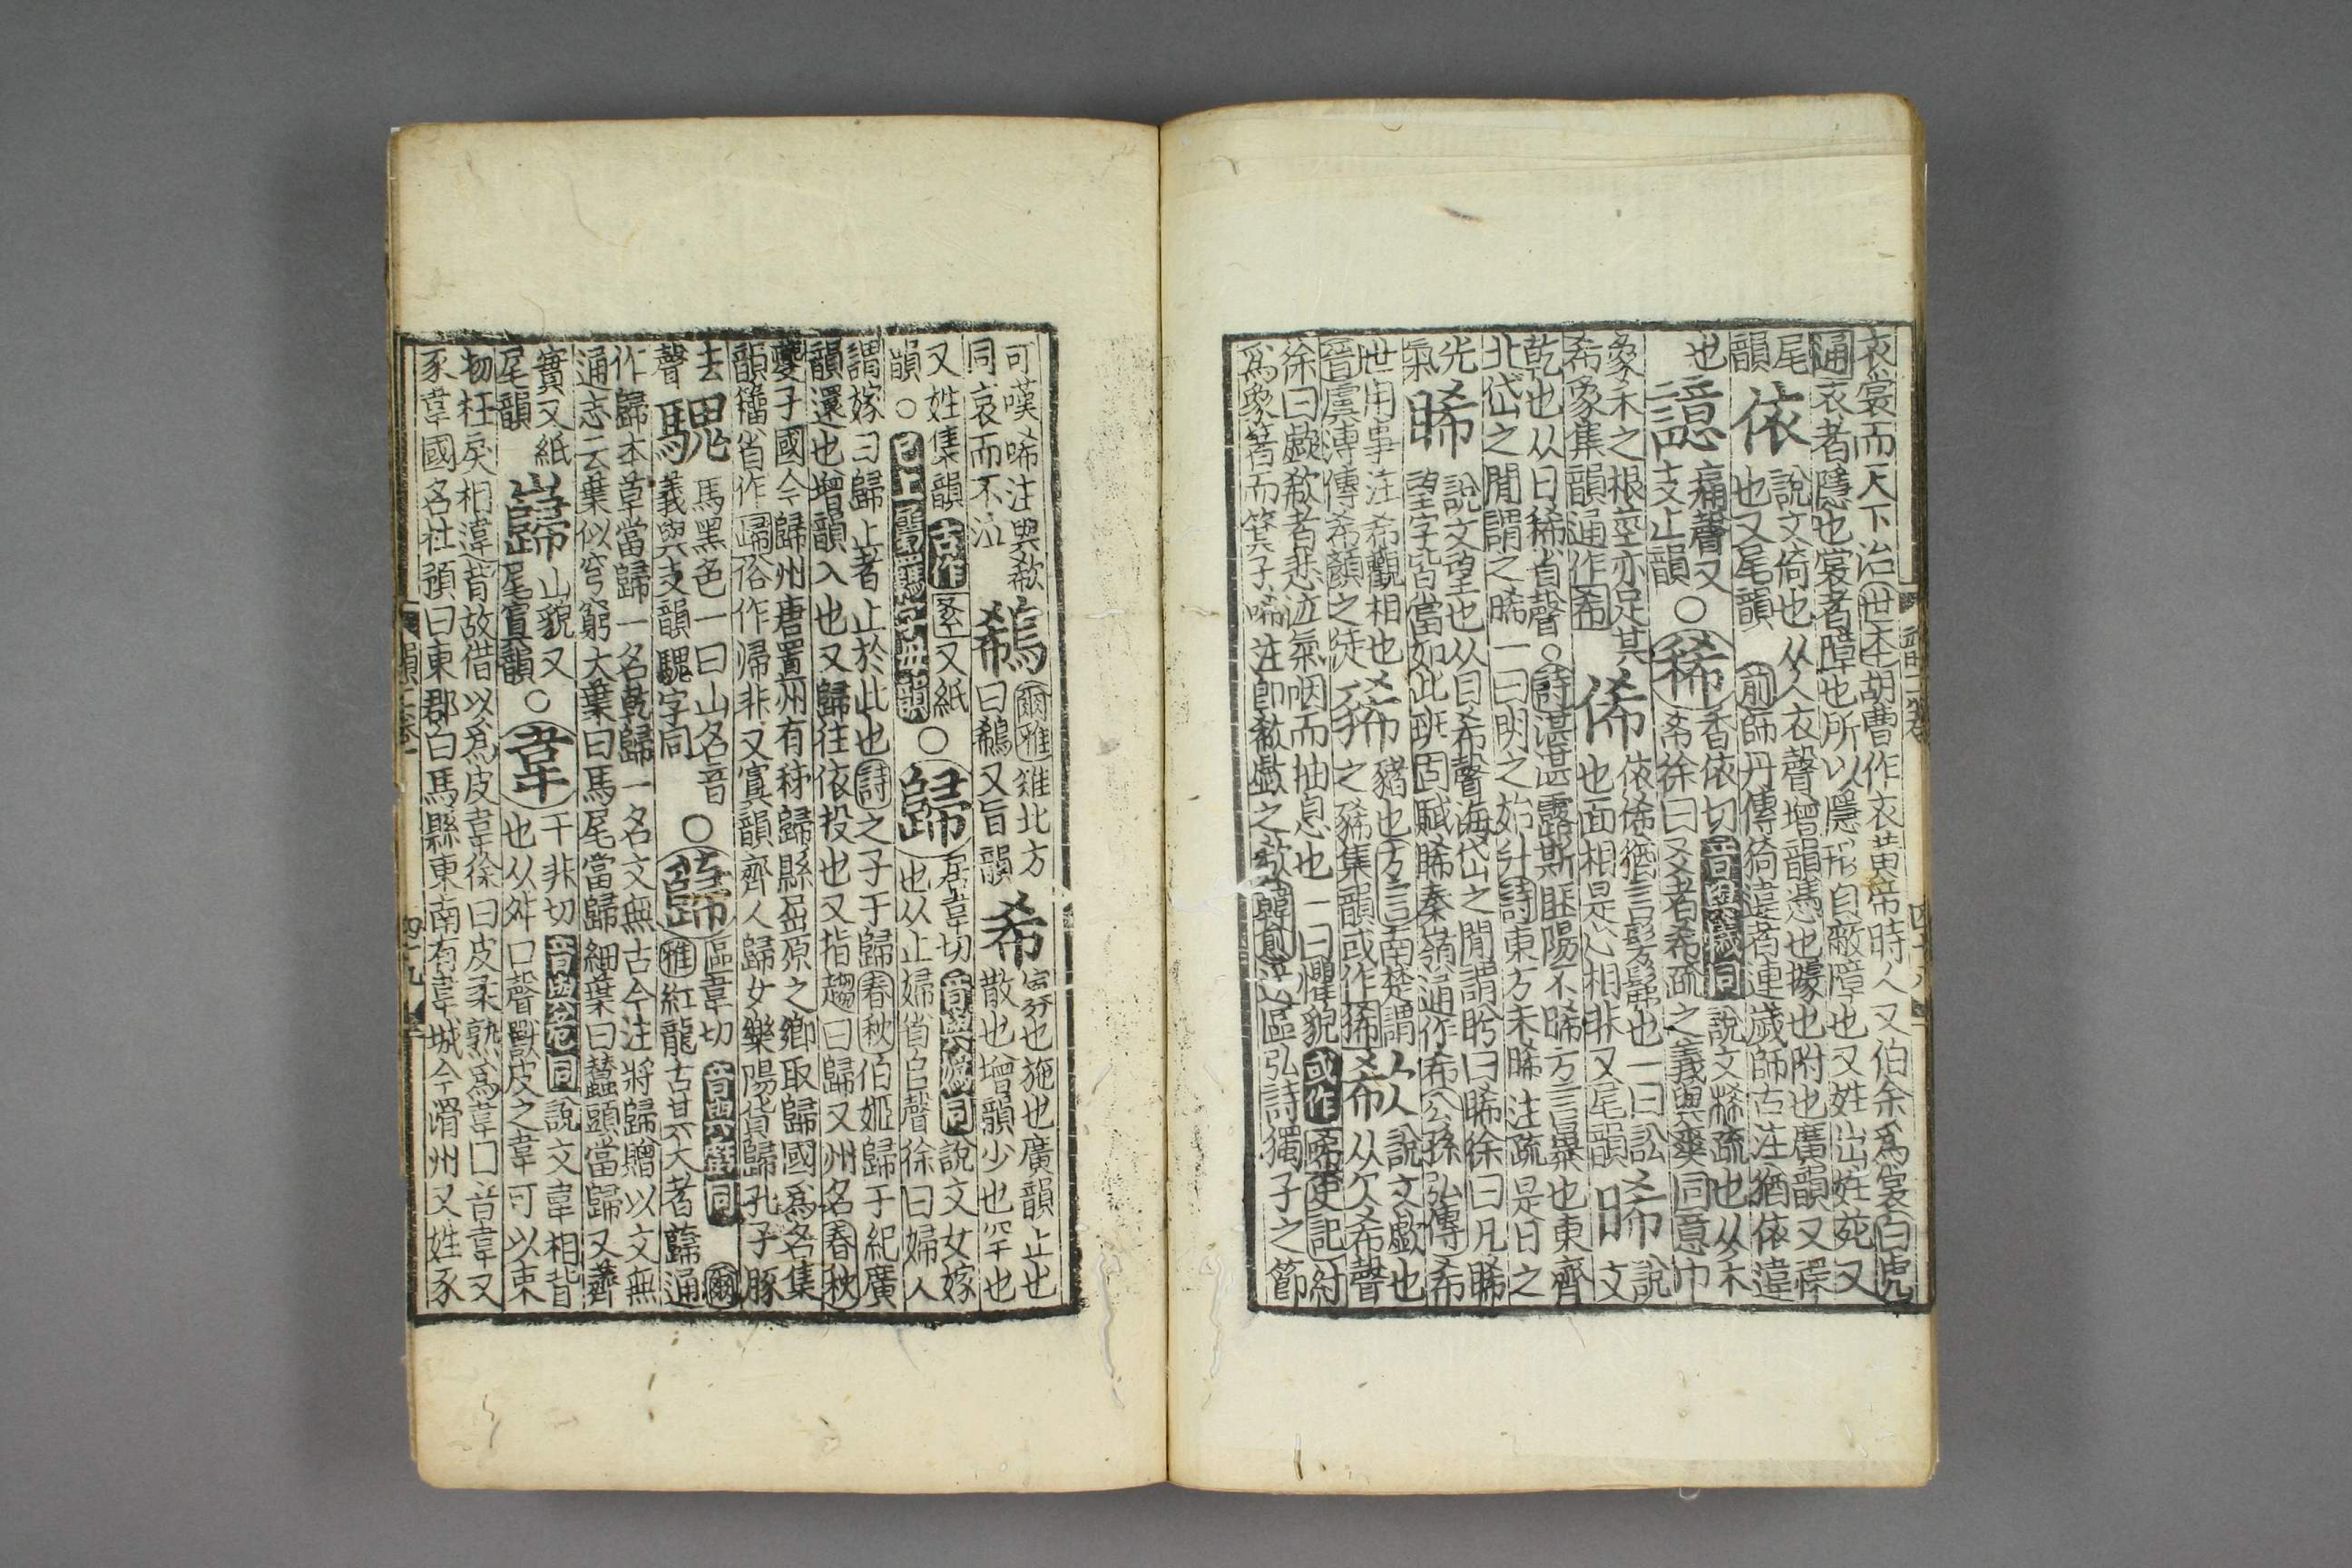 衣裳而天下治世本胡曹作衣黃帝時人又伯余爲裳白虎
通衣者隱也裳者障也所以隱形自蔽障也又姓出姓苑又
尾
韻
依
說文倚也从人衣聲增韻憑也據也附也廣韻又
也又尾韻前師丹傳倚違者連歲師古注猶依違
也
譩
痛聲又
支止韻
○稀
香依切音與羲同說文稀疏也从禾
希徐曰爻者希疏之義與爽同意巾
象禾之根莖亦足其
希象集韻通作希
俙
依俙猶言髣髴也一曰訟
也面相是心相非又尾韻
晞
說
文
乾也从日稀省聲○詩湛湛露斯匪陽不晞方言㬥也東齊
北岱之閒謂之晞一曰明之始升詩東方未晞注疏是日之
光
氣
睎
說文望也从目希聲海岱之閒謂眄曰睎徐曰凡睎
望字皆當如此班固賦睎秦嶺通作希公孫弘傳希
世用事注希觀相也
晉虞溥傳希顏之徒
豨
豬也方言南楚謂
豕之豨集韻或作狶
欷
說文歔也
从欠希聲
徐曰歔欷者悲泣氣咽而抽息也一曰懼貌或作唏史記紂
爲象箸而箕子唏注卽欷歔之欷韓愈送區弘詩獨子之節
可嘆唏注與欷
同哀而不泣
鵗
爾雅雉北方
曰鵗又旨韻
希
寡也施也廣韻止也
散也增韻少也罕也
又姓集韻古作㣇又紙
韻○已上屬羈字母韻
○歸
居韋切音與媯同說文女嫁
也从止婦省𠂤聲徐曰婦人
謂嫁曰歸止者止於此也詩之子于歸春秋伯姬歸于紀廣
韻還也增韻入也又歸往依投也又指趨曰歸又州名春秋
夔子國今歸州唐置州有秭歸縣屈原之鄉取歸國爲名集
韻籀省作㱕俗作帰非又寘韻齊人歸女樂陽貨歸孔子豚
去
聲
騩
馬黑色一曰山名音
義與支韻騩字同
○蘬
區韋切音與虧同爾
雅紅龍古其大者蘬通
作歸本草當歸一名乾歸一名文無古今注將歸贈以文無
通志云葉似芎藭大葉曰馬尾當歸細葉曰蠶頭當歸又薺
實又紙
尾韻
巋
山貌又
尾寘韻
○韋
于非切音與危同說文韋相背
也从舛口聲獸皮之韋可以束
物枉戾相違背故借以爲皮韋徐曰皮柔熟爲韋囗音韋又
豕韋國名杜預曰東郡白馬縣東南有韋城今滑州又姓豕
四十九